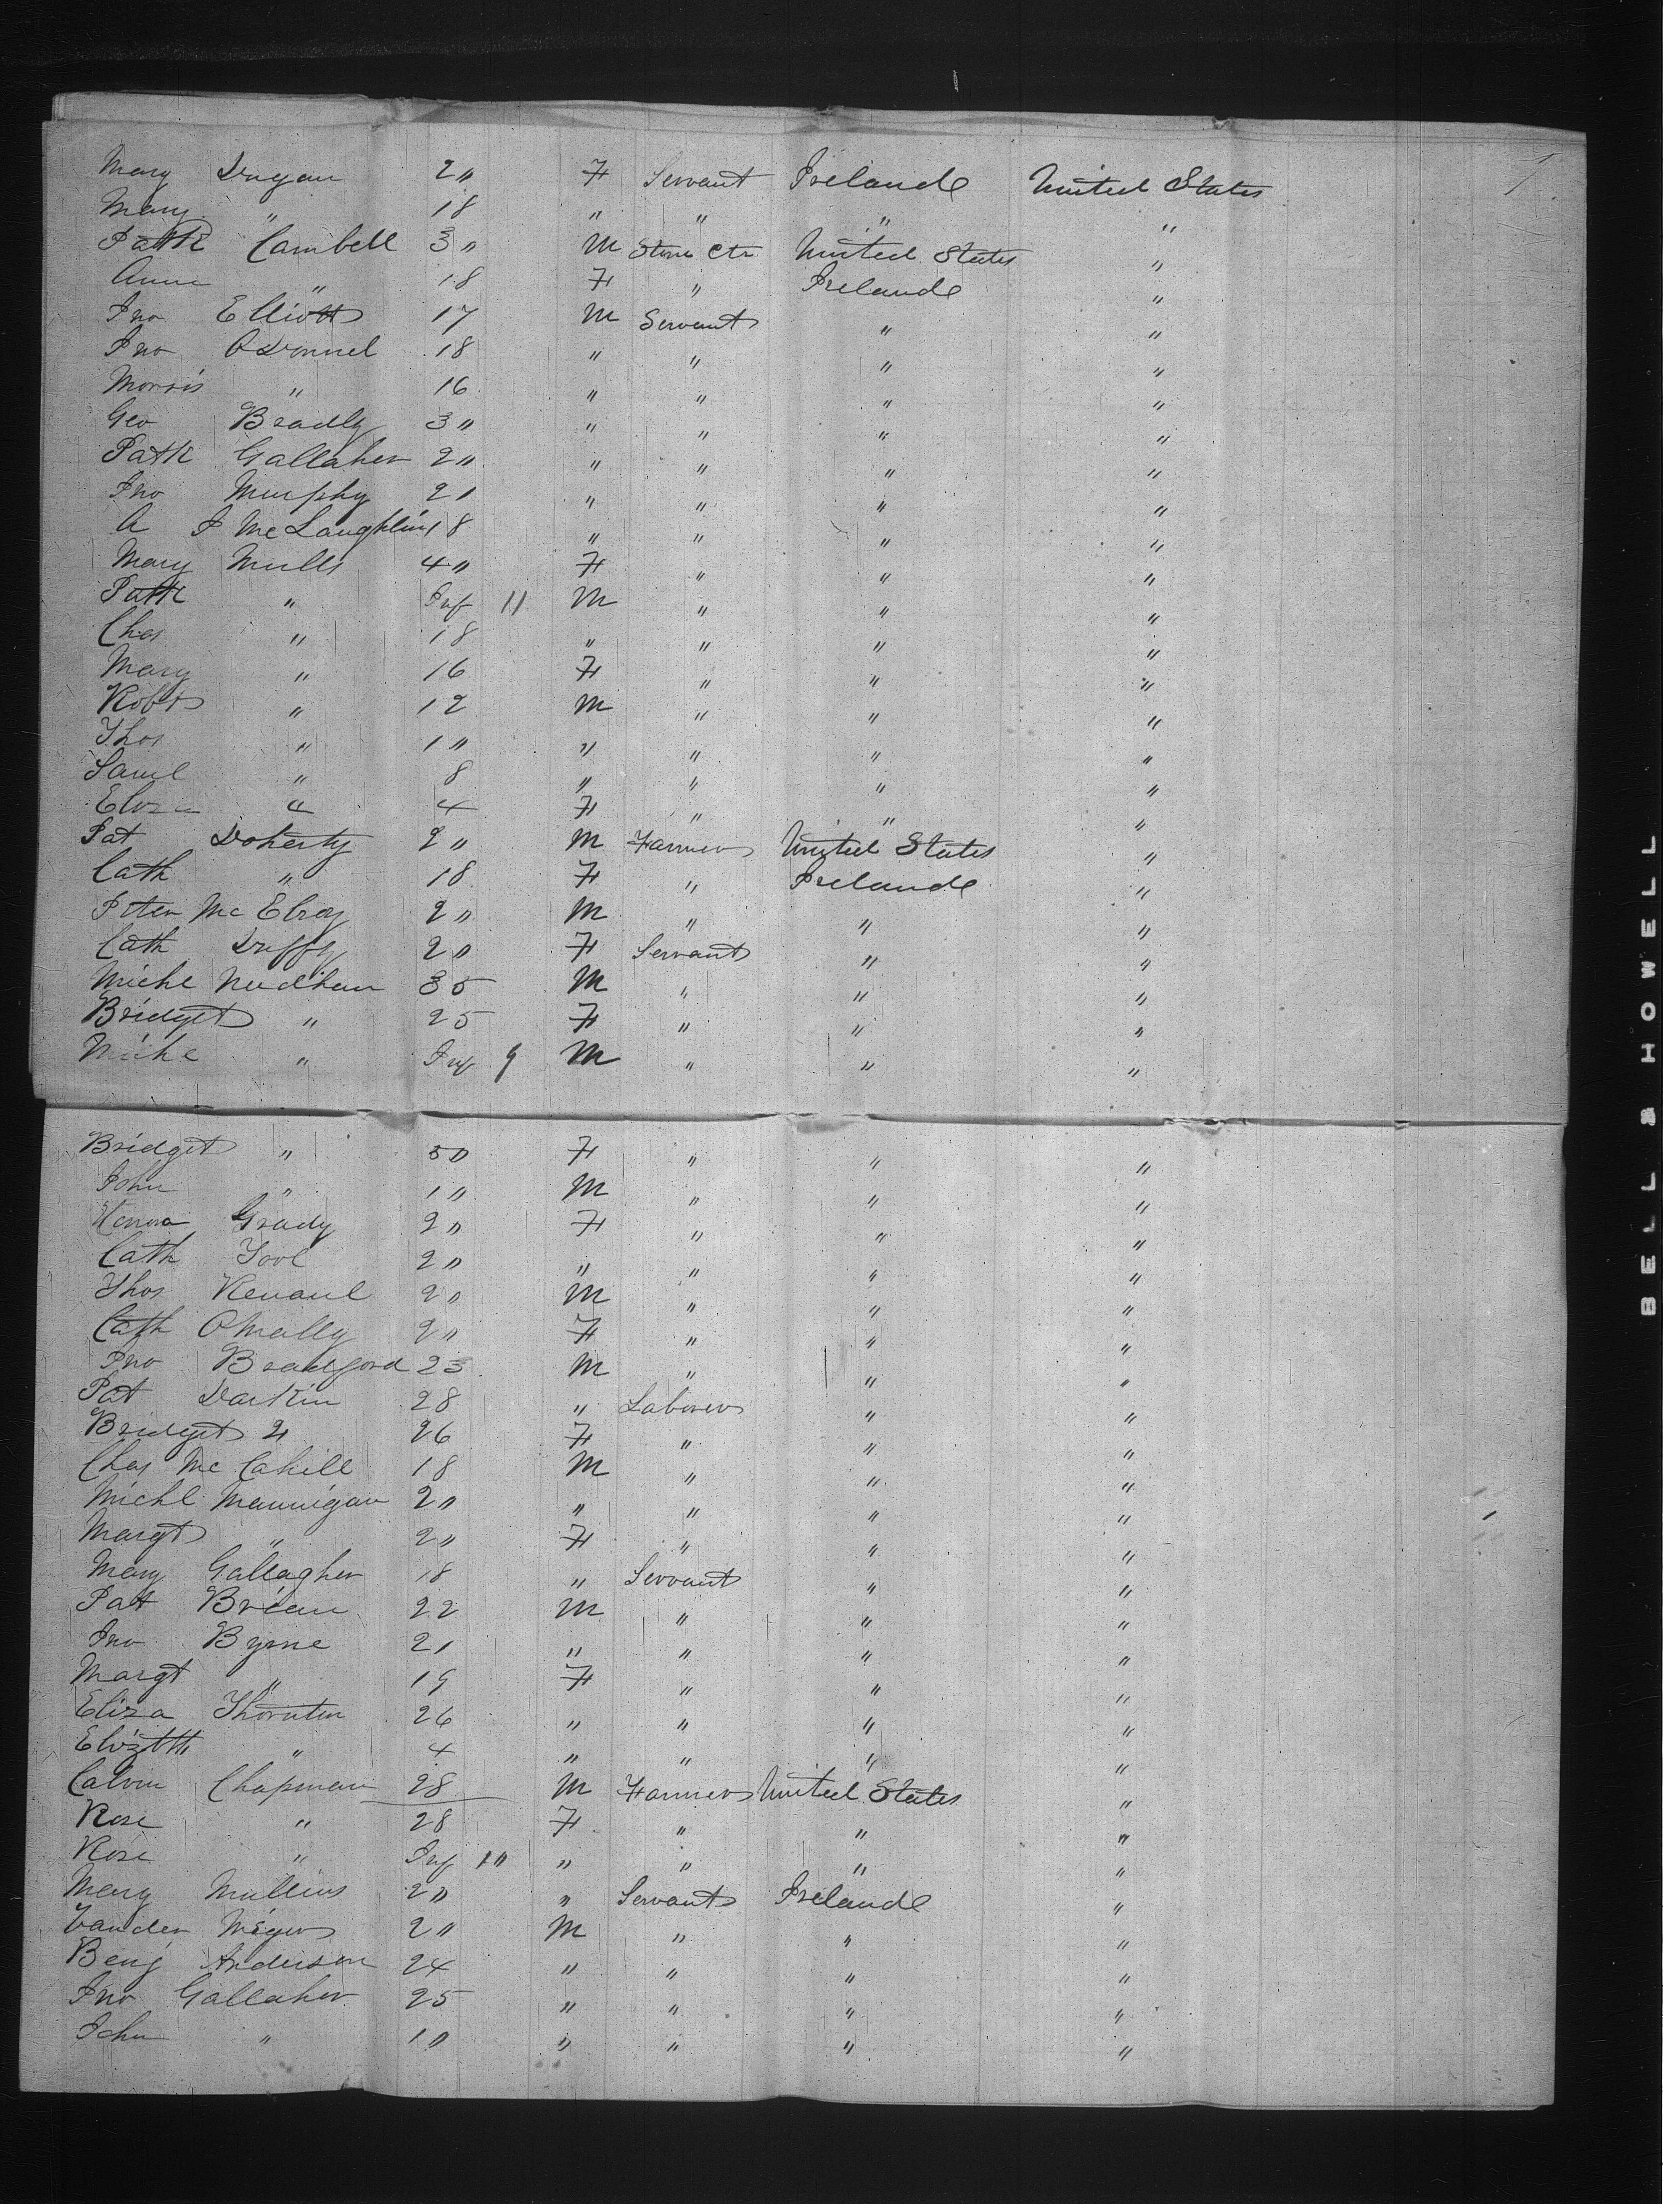 Mary Dugan 2" F Servant Ireland United States
Mary " 18 " " " "
Patk Cambell 3" M Stone Ctr United States "
Anne " 18 F " Ireland "
Jno Elliott 17 M Servant " "
Jno ODonnel 18 " " " "
Morris " 16 " " " "
Geo Bradly 3" " " " "
Patk Gallaher 2" " " " "
Jno Murphy 21 " " " "
A J McLaughlin 18 " " " "
Mary Mills 4" F " " "
Patk " Inf 11 M " " "
Chas " 18 " " " "
Mary " 16 F " " "
Robt " 12 M " " "
Thos " 1" " " " "
Saml " 8 " " " "
Eliza " 4 F " " "
Pat Doherty 2" M Farmer United States "
Cath " 18 F " Ireland "
Peter McElroy 2" M " " "
Cath Duffy 20 F Servant " "
Michl Needham 35 M " " "
Bridget " 25 F " " "
Michl " Inf 9 M " " "
Bridget " 50 F " " "
John " 1" M " " "
Henora Grady 2" F " " "
Cath Tool 20 " " " "
Thos 20 M " " "
Cath OMally 2" F " " "
Jno Bradford 23 M " " "
Pat Darkin 28 " Laborer " "
Bridget " 26 F " " "
Chas McCahill 18 M " " "
Michl Mannigan 2" " " " "
Margt " 2" F " " "
Mary Gallagher 18 " Servant " "
Pat Brien 22 M " " "
Jno Byrne 21 " " " "
Margt " 19 F " " "
Eliza Thornton 26 " " " "
Elizbth " 4 " " " "
Calvin Chapman 28 M Farmer United States "
Rose " 28 F " " "
Rose " Inf 1" " " " "
Mary Mullins 20 " Servant Ireland "
Vanden Meyer 2" M " " "
Benj Anderson 24 " " " "
Jno Gallaher 25 " " " "
John " 10 " " " "
BELL & HOWELL